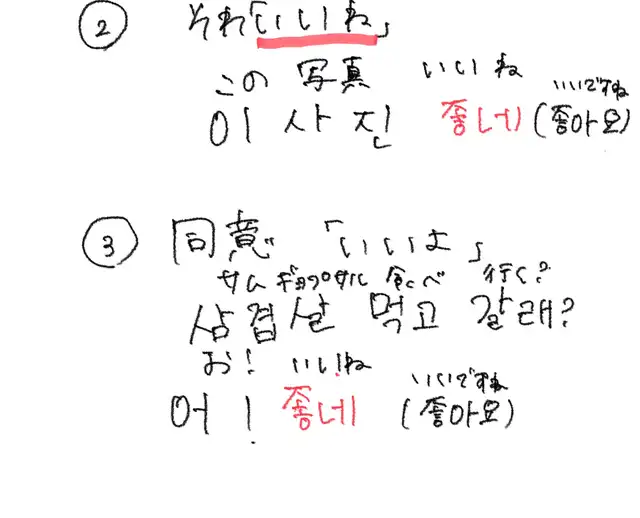 ② それ「いいね」
この 写真 いいね いいですね
이 사진 좋네 (좋아요)
③ 同意 「いいよ」
サムギョプサル 食べ 行く?
삼겹살 먹고 갈래?
お! いいね いいですね
어! 좋네 (좋아요)